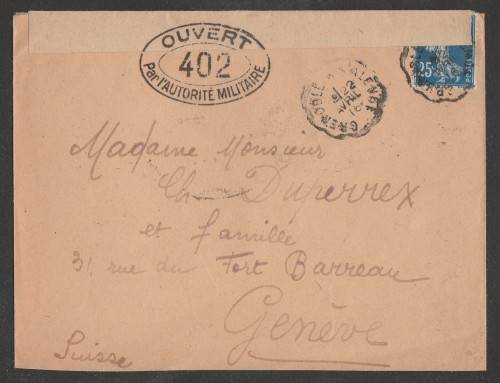 OUVERT
402
par l'AUTORITÉ MILITAIRE
GRENOBLE A VALENCE
25
Madame Monsieur
Ch. Duperrex
et famille
31, rue du Fort Barreau
Genève
Suisse